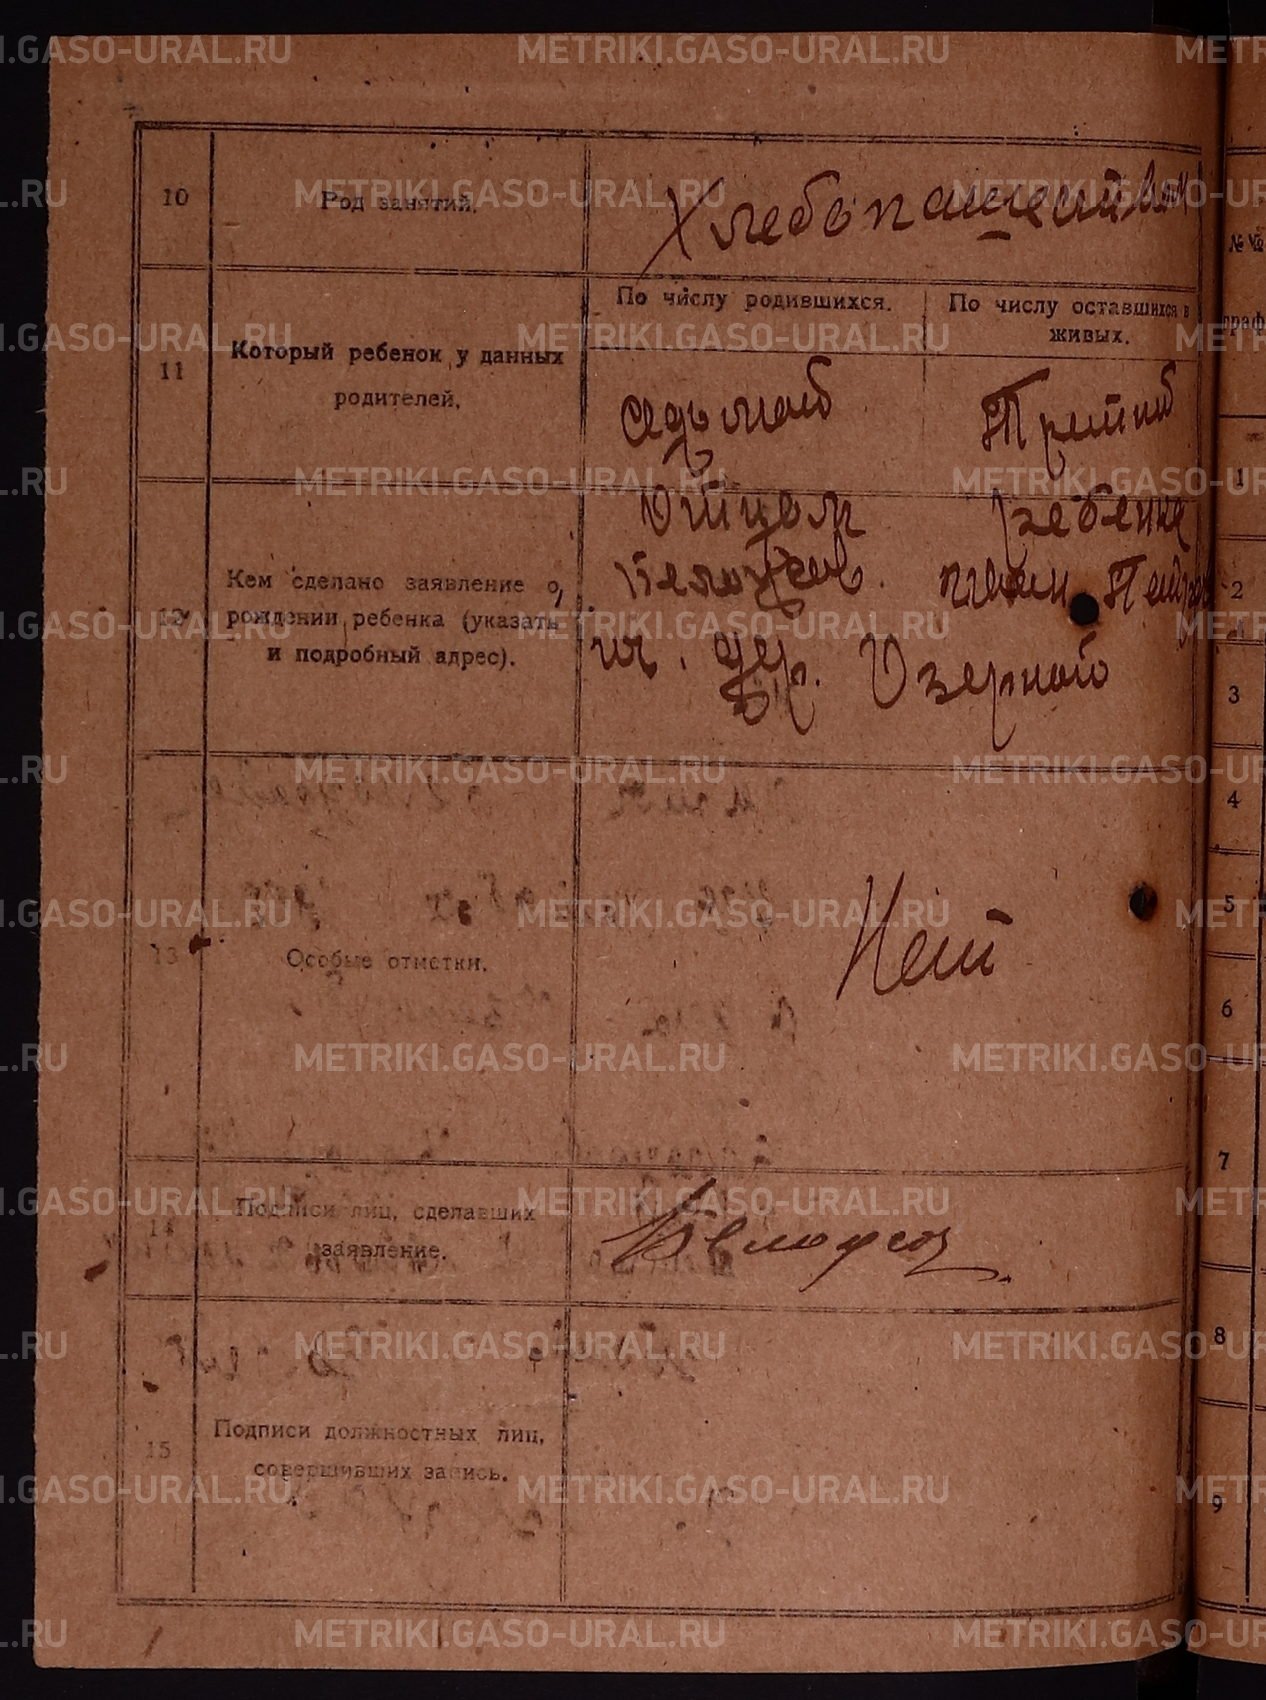 10 Род занятий. Хлебопашеством
11 Который ребенок у данных родителей.
По числу родившихся. По числу оставшихся в живых.
седьмой Третий
12 Кем сделано заявление о рождении ребенка (указать и подробный адрес).
Отцом ребенка
дер. Озерной
13 Особые отметки. Нет
14 Подписи лиц, сделавших заявление.
15 Подписи должностных лиц, совершивших запись.
№№
граф
1
2
3
4
5
6
7
8
9
METRIKI.GASO-URAL.RU